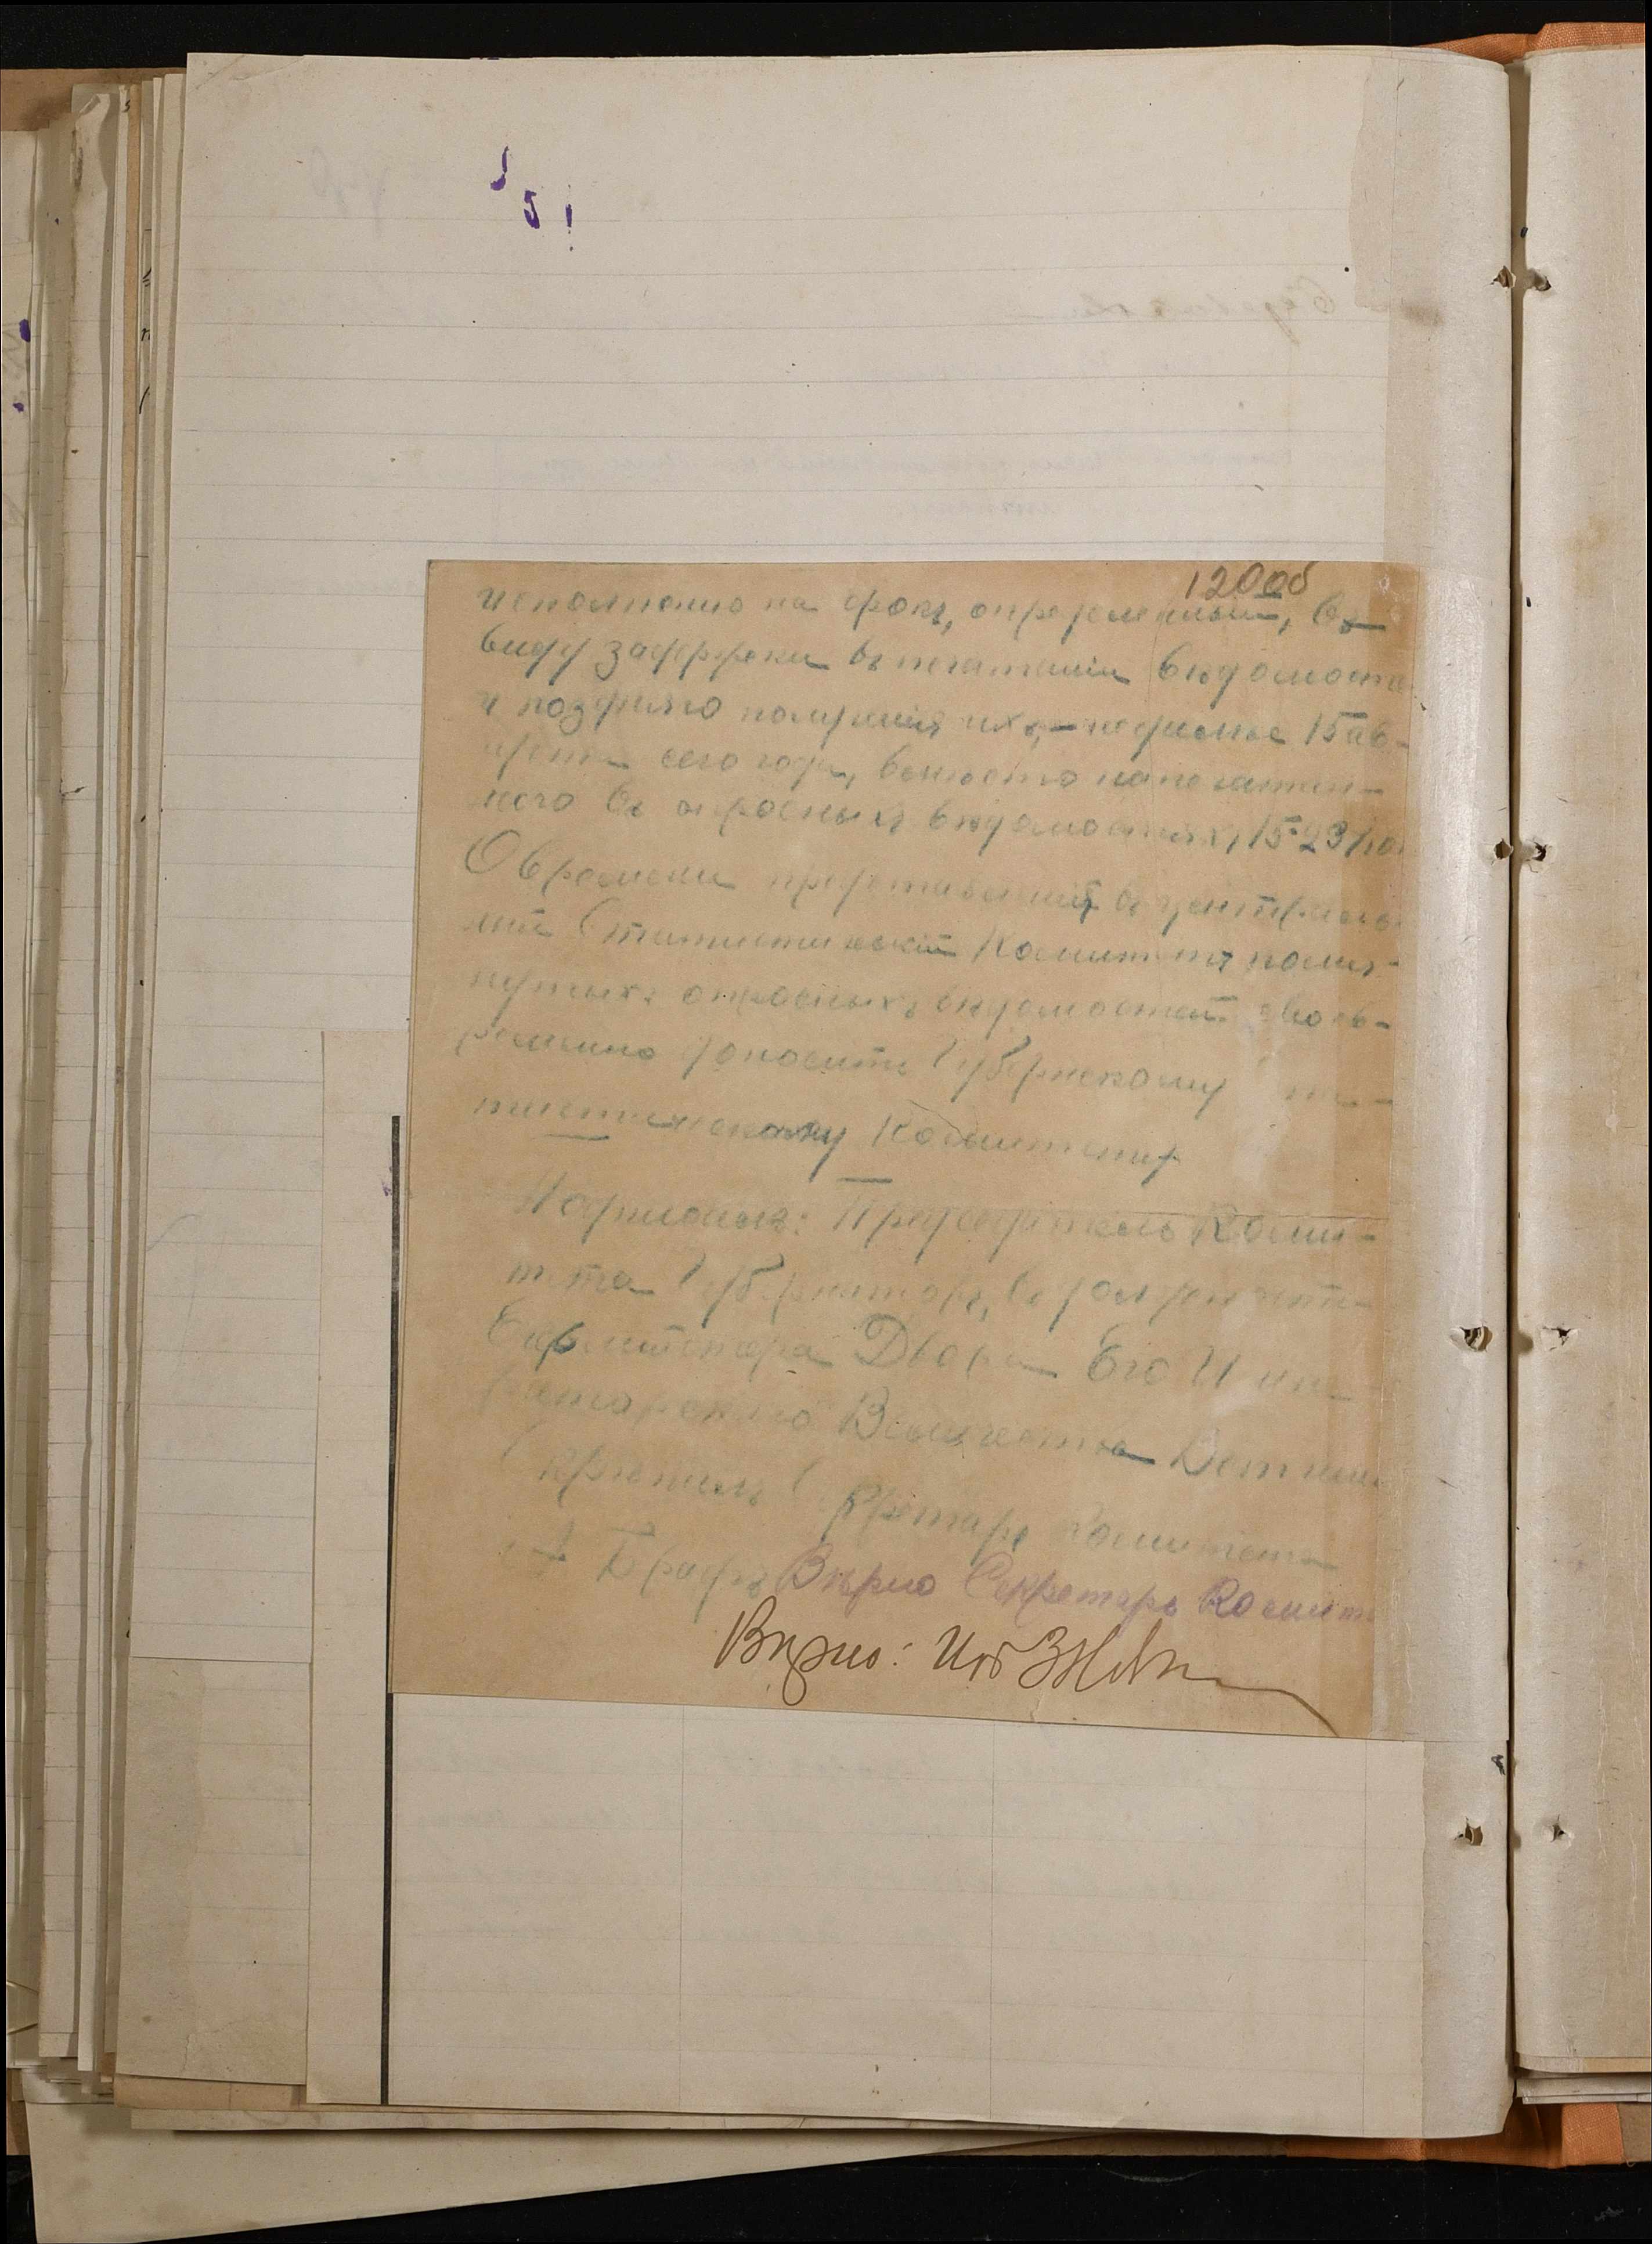 120об
исполнено на срокъ, определенный, въ
виду задержки въ печатании ведомостей
и поздняго получения ихъ, — не далее 15 ав-
густа сего года, вместо напечатан-
ного въ опросныхъ ведомостяхъ, 15-23 
О времени представления въ Централь-
ный Статистический Комитетъ помя-
нутыхъ опросныхъ ведомостей своев-
ременно доносить Губернскому Ста-
тистическому Комитету
Подписалъ: Председатель Коми-
тета Губернаторъ, въ должности
Егермейстера Двора Его Им-
ператорского Величества
Скрепилъ Секретарь Комитета
Верно Секретарь Комит
Верно: